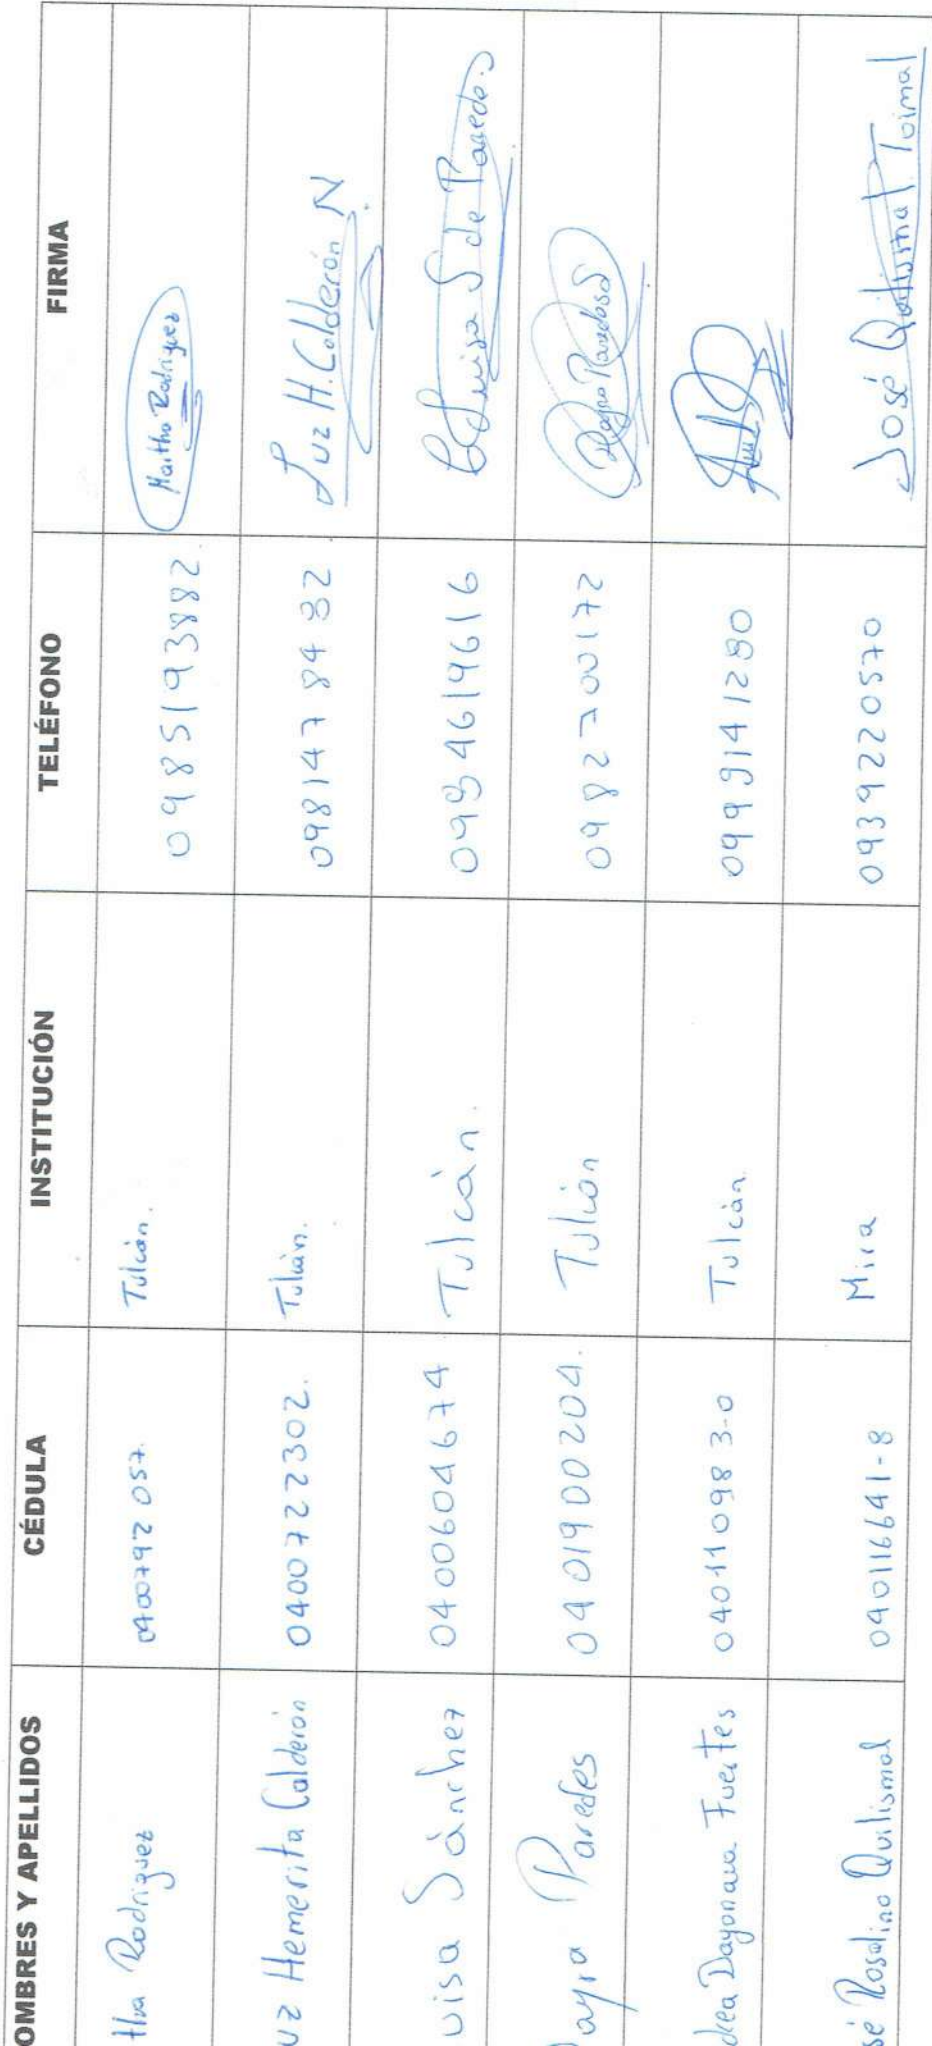 OMBRES Y APELLIDOS CÉDULA INSTITUCIÓN TELÉFONO FIRMA
Rodriguez 0400792057. Tulcán. 0985193882. Martha Rodriguez
uz Hemerita Calderón 0400722302. Tulcán. 0981478432 Luz H. Calderón N
uisa Sánchez 0400604674 Tulcán. 0993461961 6 Luisa S de Paredes
ayra Paredes 0401900204. Tulcán 0982700172 Mayra Paredes S
drea Dayanara Fuertes 040110983-0 Tulcán 0999141280
sé Rosalino Quilismal 040116641-8 Mira 0939220570 José Quilismal Toimal